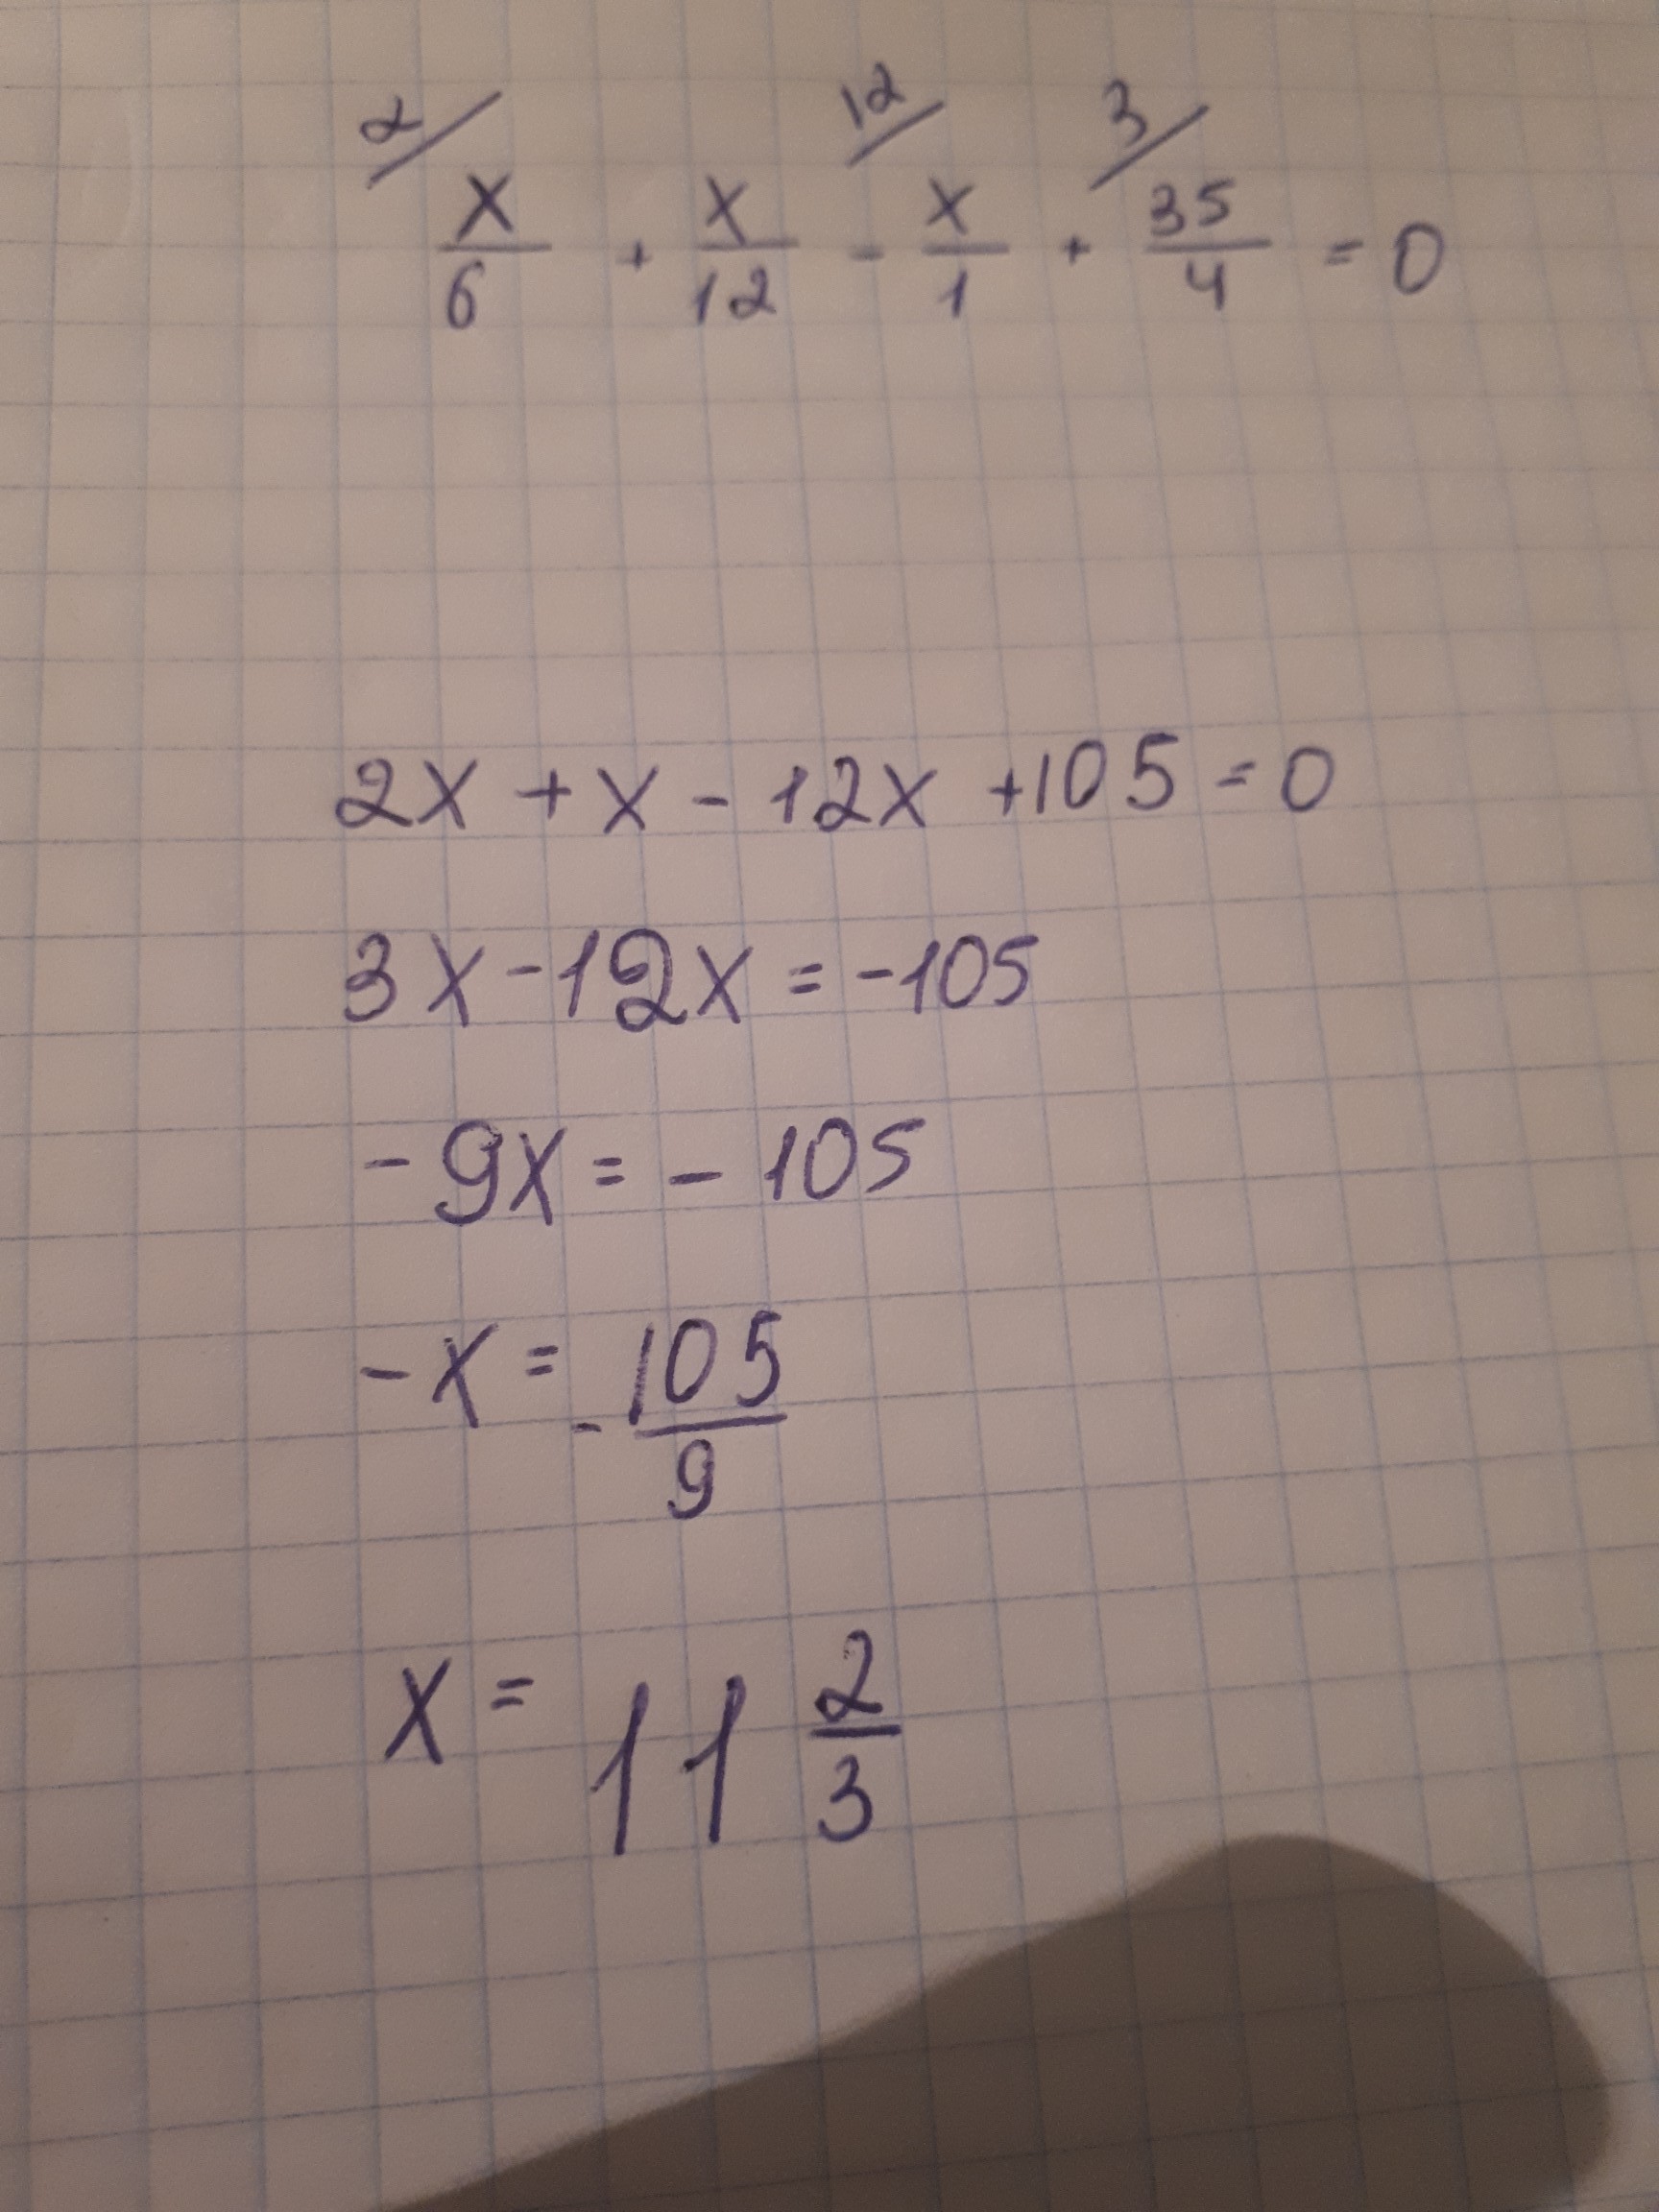 2/ x/6 + x/12 - 12/ x/1 + 3/ 35/4 = 0
2x + x - 12x + 105 = 0
3x - 12x = -105
- 9x = - 105
- x = - 105/9
x = 11 2/3